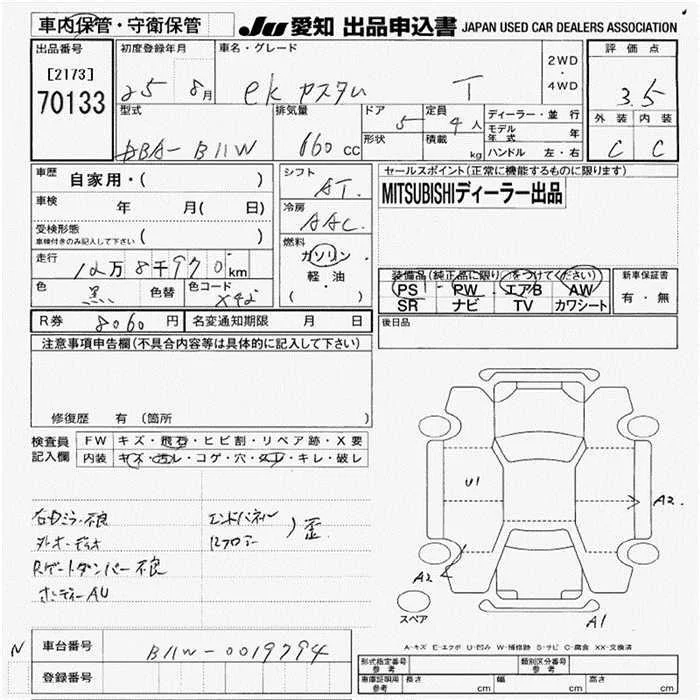 車内保管・守衛保管
JU 愛知 出品申込書 JAPAN USED CAR DEALERS ASSOCIATION
出品番号 初度登録年月 車名・グレード 評価点
[2173]
70133
25 8月 ek カスタム T 2WD・4WD 3.5
型式 排気量 ドア 5 定員 4人 ディーラー・並行 外装 内装
形状 積載 kg モデル年式 年
DBA-B11W 660cc ハンドル 左・右 C C
車歴 自家用・( ) シフト AT セールスポイント(正常に機能するものに限ります)
車検 年 月( 日) 冷房 AAC MITSUBISHIディーラー出品
受検形態
車検付きのみ記入して下さい ( )
走行 12万8千970km 燃料 ガソリン・軽油・( ) 装備品(純正品に限り○をつけてください) 新車保証書
色 黒 色替 色コード X42 PS・PW・エアB AW 有・無
SR ナビ TV カワシート
R券 8060円 名変通知期限 月 日 後日品
注意事項申告欄(不具合内容等は具体的に記入して下さい)
修復歴 有 (箇所
検査員記入欄 FW キズ・飛石・ヒビ割・リペア跡・X要
内装 キズ・汚レ・コゲ・穴・スレ・キレ・破レ
右ミラー不良 エンドパネル
外オーディオ Rフロアー ) 歪
Rゲートダンパー不良
ボディーAU
U1
A2
A2
A1
スペア
A-キズ E-エクボ U-凹み W-補修跡 S-サビ C-腐食 XX-交換済
N 車台番号 B11W-0019794
登録番号
形式指定番号 参考 類別区分番号 参考
車庫証明用 参考 長さ cm 幅 cm 高さ cm